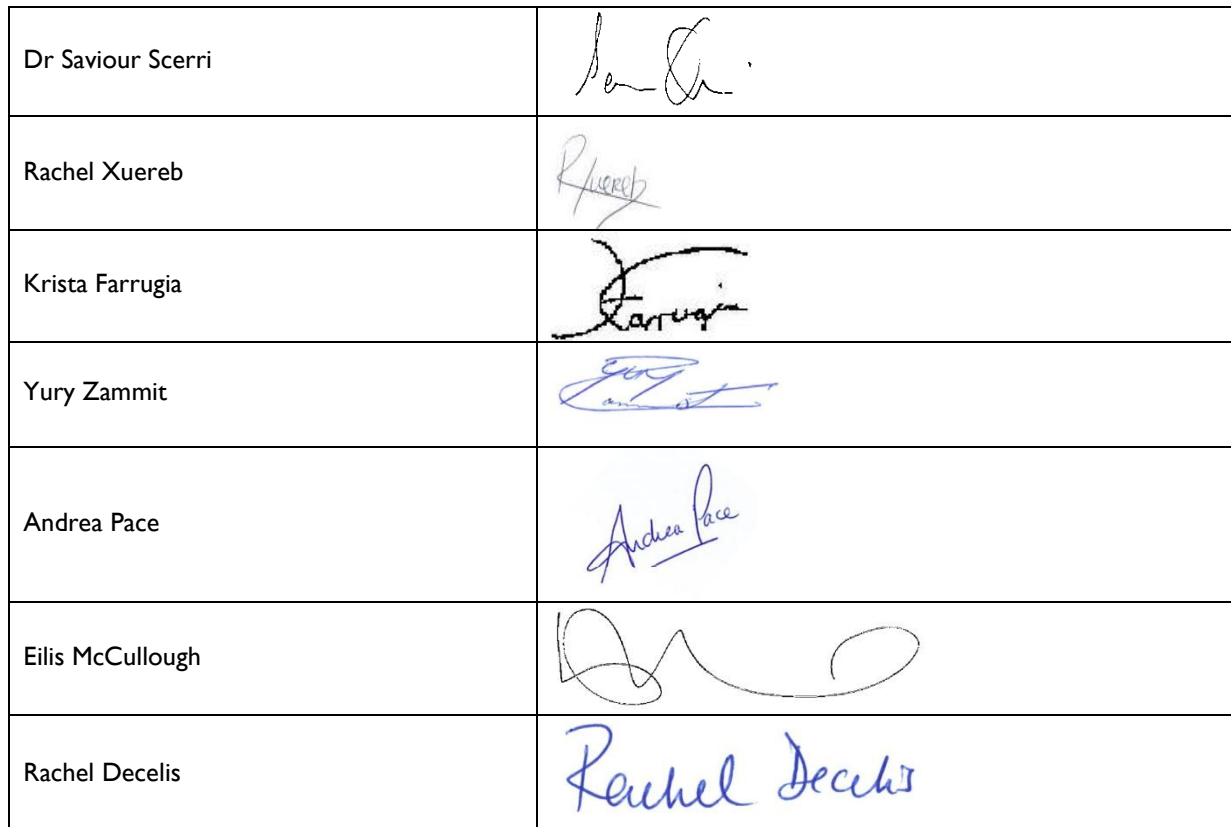 Dr Saviour Scerri
Rachel Xuereb
RXuereb
Krista Farrugia
Farrugia
Yury Zammit
Yury
Andrea Pace
Andrea Pace
Eilis McCullough
Rachel Decelis
Rachel Decelis